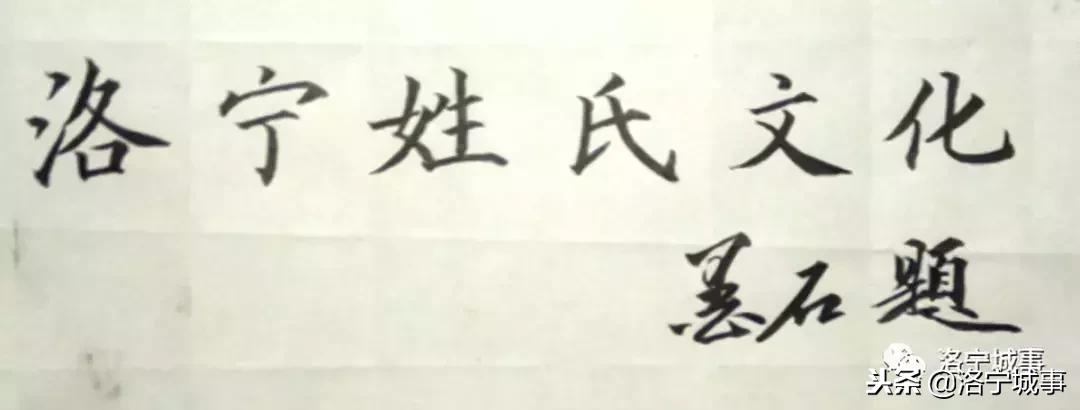 洛宁姓氏文化
石題
洛宁城事
头条 @洛宁城事